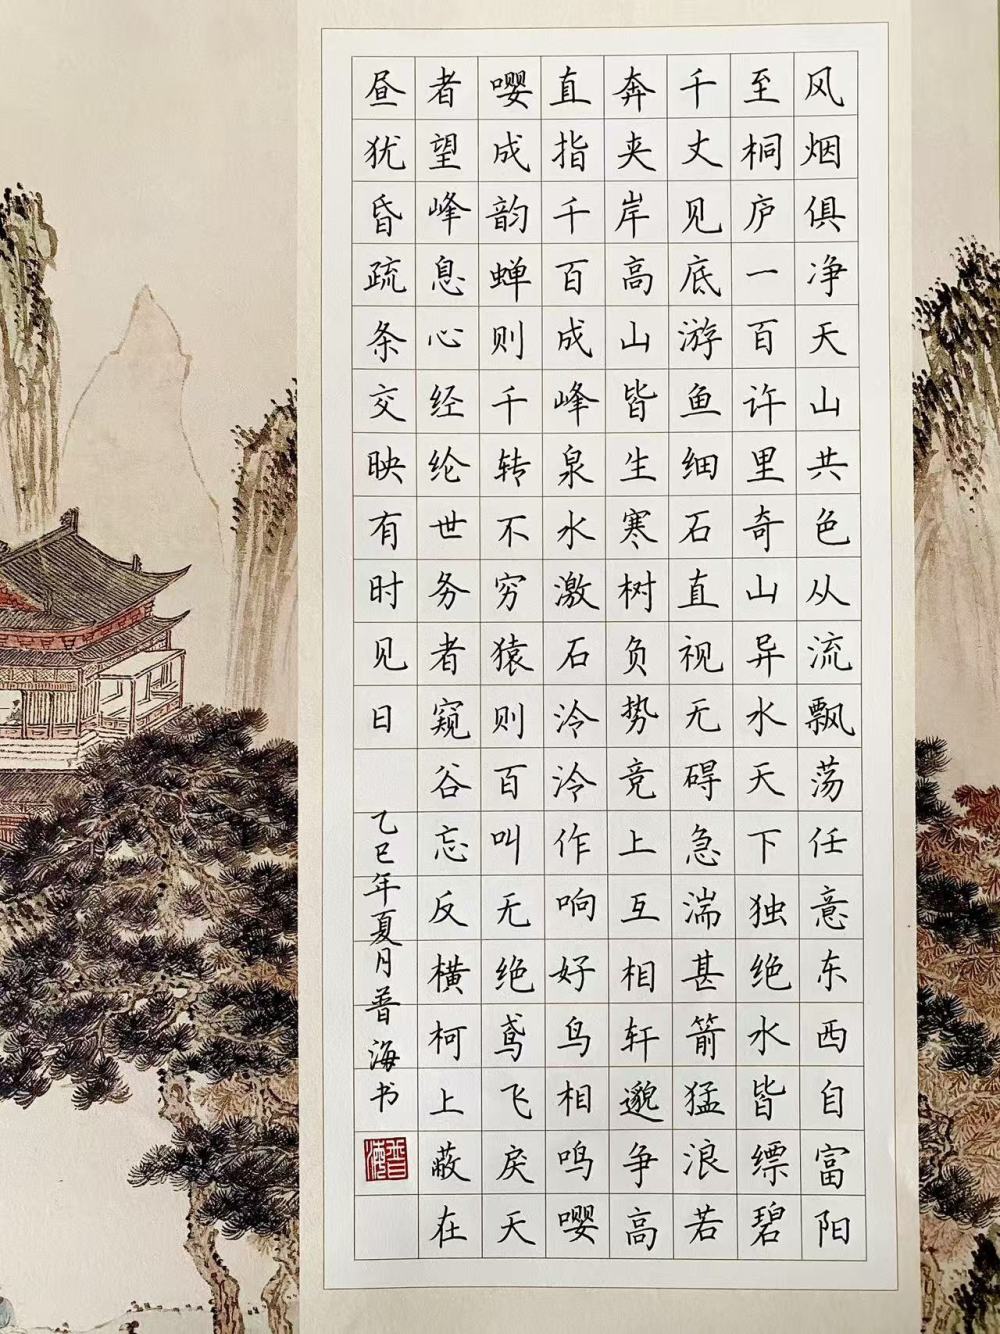 风烟俱净天山共色从流飘荡任意东西自富阳
至桐庐一百许里奇山异水天下独绝水皆缥碧
千丈见底游鱼细石直视无碍急湍甚箭猛浪若
奔夹岸高山皆生寒树负势竞上互相轩邈争高
直指千百成峰泉水激石泠泠作响好鸟相鸣嘤
嘤成韵蝉则千转不穷猿则百叫无绝鸢飞戾天
者望峰息心经纶世务者窥谷忘反横柯上蔽在
昼犹昏疏条交映有时见日
乙巳年夏月普海书
普海